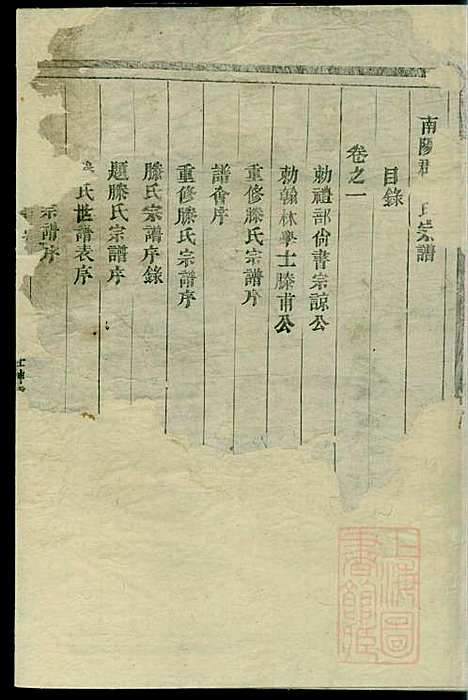 南陽郡 氏宗譜
目錄
卷之一
勅禮部尙書宗諒公
勅翰林學士滕甫公
重修滕氏宗譜序
譜會序
重修滕氏宗譜序
滕氏宗譜序錄
題滕氏宗譜序
氏世譜表序
宗譜序
上海圖書館藏